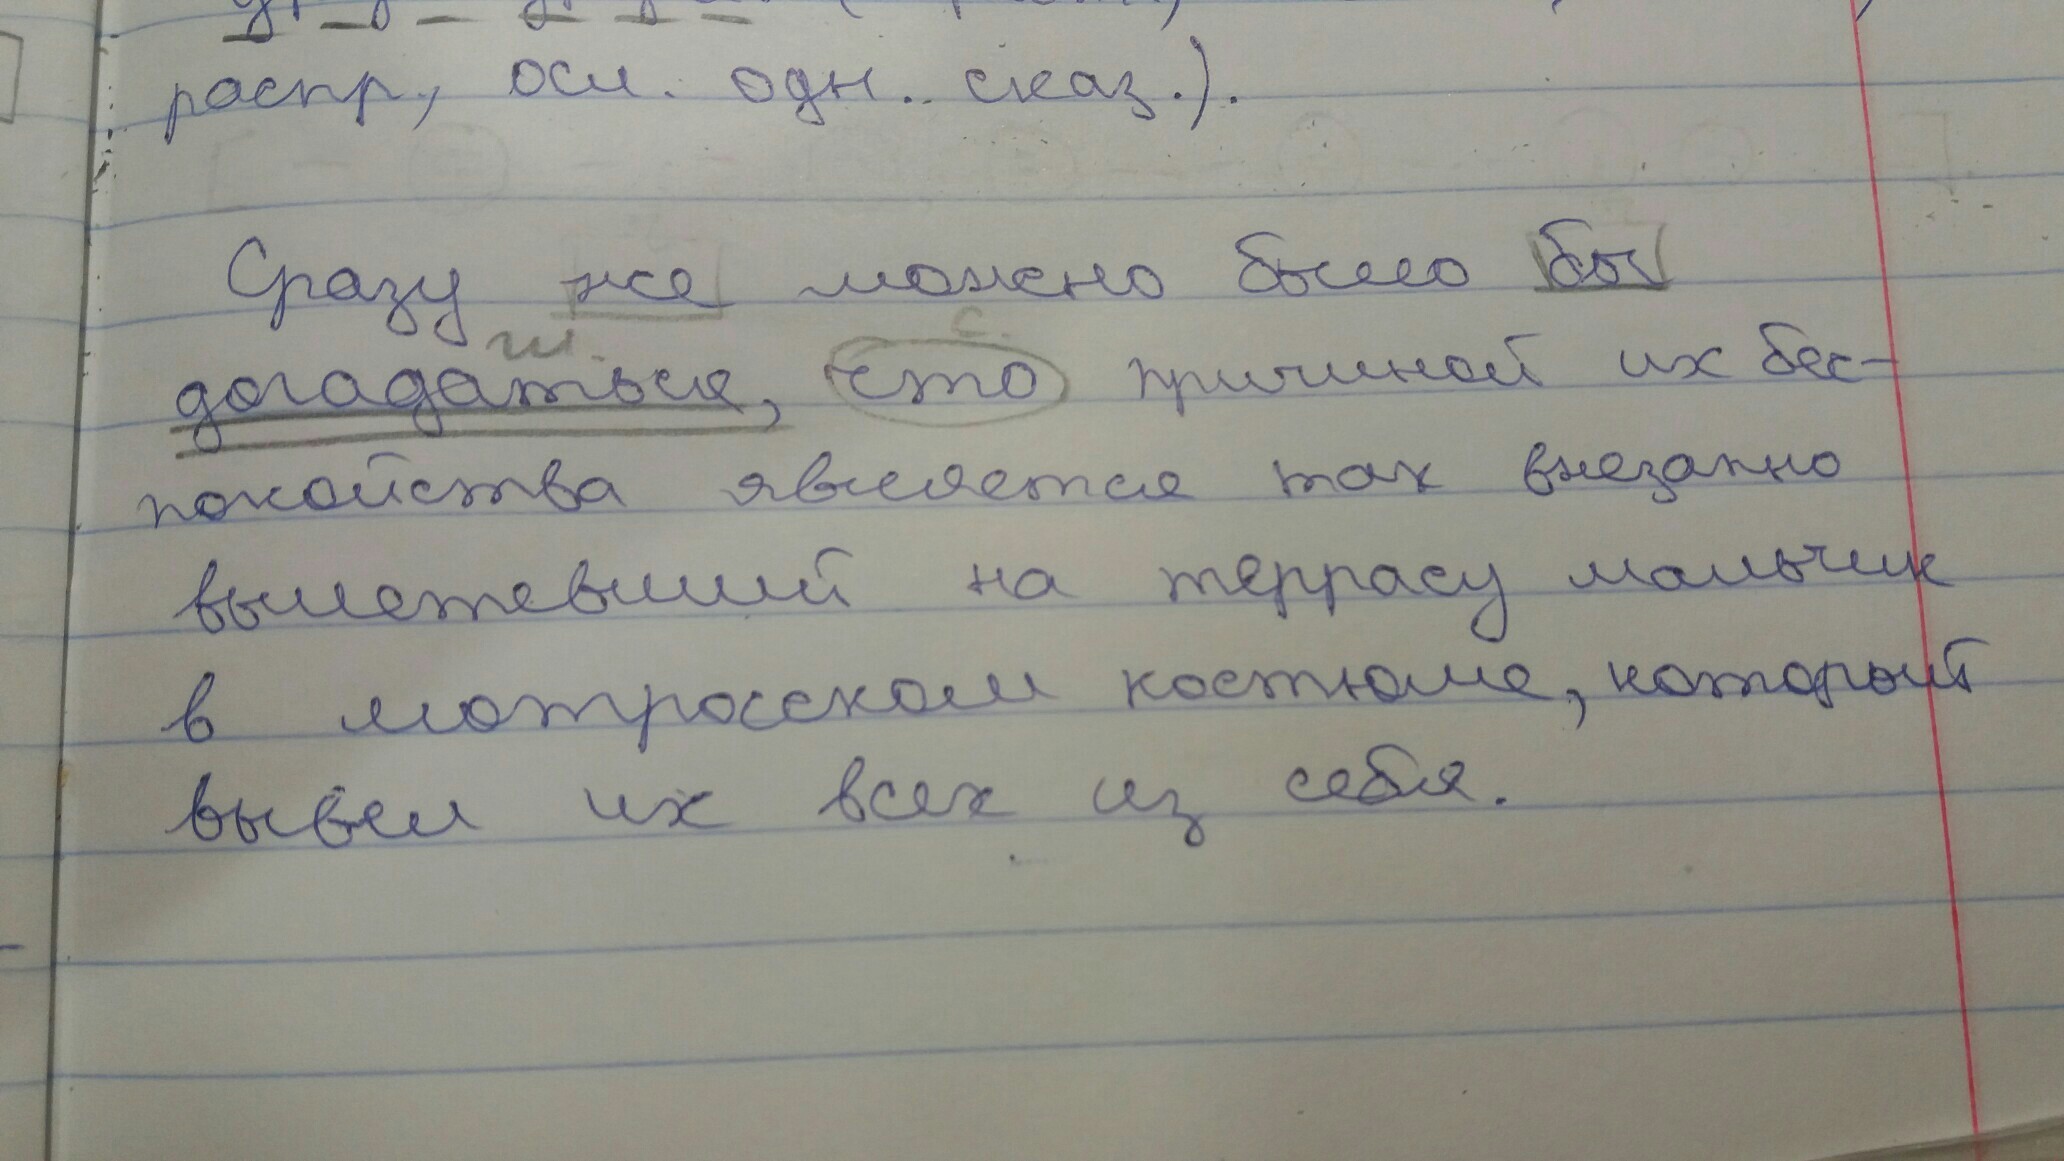 распр, осл. одн.. сказ.).
Сразу же можно было бы
гл. с.
догадаться, что причиной их бес-
покойства является так внезапно
вылетевший на террасу мальчик
в матросском костюме, который
вывел их всех из себя.